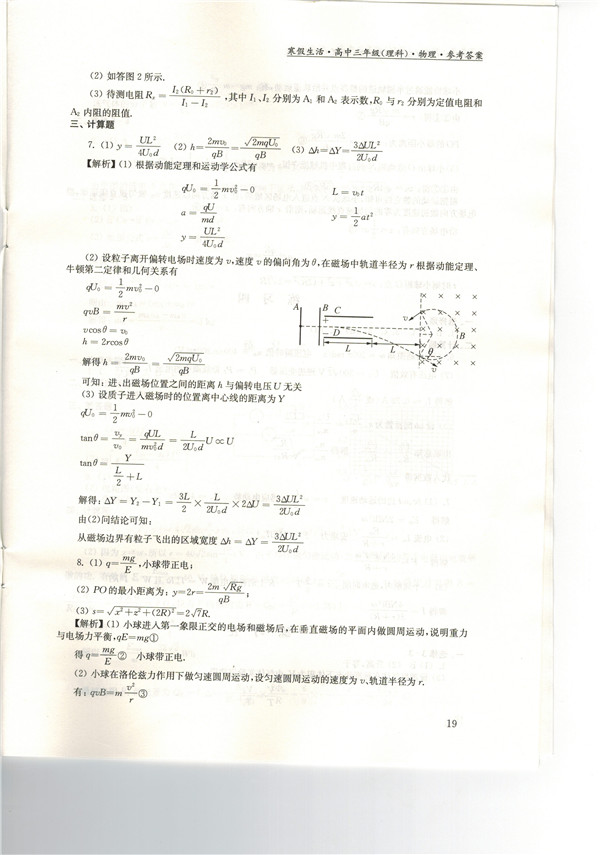 寒假生活·高中三年级(理科)·物理·参考答案
(2) 如答图 2 所示.
(3) 待测电阻 Rₓ = I₂(R₀+r₂)/(I₁-I₂) ,其中 I₁、I₂ 分别为 A₁ 和 A₂ 表示数,R₀ 与 r₂ 分别为定值电阻和
A₂ 内阻的阻值.
三、计算题
7. (1) y = UL²/4U₀d (2) h = 2mv₀/qB = √(2mqU₀)/qB (3) Δh=ΔY= 3ΔUL²/2U₀d
【解析】(1) 根据动能定理和运动学公式有
qU₀ = 1/2 mv₀² - 0 L = v₀t
a = qU/md y = 1/2 at²
y = UL²/4U₀d
(2) 设粒子离开偏转电场时速度为 v,速度 v 的偏向角为 θ,在磁场中轨道半径为 r 根据动能定理、
牛顿第二定律和几何关系有
qU₀ = 1/2 mv₀² - 0
qvB = mv²/r
vcosθ = v₀
h = 2rcosθ
A B C D L L v θ v B
解得 h = 2mv₀/qB = √(2mqU₀)/qB
可知:进、出磁场位置之间的距离 h 与偏转电压 U 无关
(3) 设质子进入磁场时的位置离中心线的距离为 Y
qU₀ = 1/2 mv₀² - 0
tanθ = vᵧ/v₀ = qUL/mv₀²d = L/2U₀d U ∝ U
tanθ = Y/(L/2 + L)
解得: ΔY = Y₂ - Y₁ = 3L/2 × L/2U₀d × 2ΔU = 3ΔUL²/2U₀d
由(2)问结论可知:
从磁场边界有粒子飞出的区域宽度 Δh = ΔY = 3ΔUL²/2U₀d
8. (1) q= mg/E ,小球带正电;
(2) PO的最小距离为: y=2r= 2m√(Rg)/qB ;
(3) s= √(x²+z²+(2R)²) =2√7R.
【解析】(1) 小球进入第一象限正交的电场和磁场后,在垂直磁场的平面内做圆周运动,说明重力
与电场力平衡,qE=mg①
得 q= mg/E ② 小球带正电.
(2) 小球在洛伦兹力作用下做匀速圆周运动,设匀速圆周运动的速度为 v、轨道半径为 r.
有: qvB=m v²/r ③
19